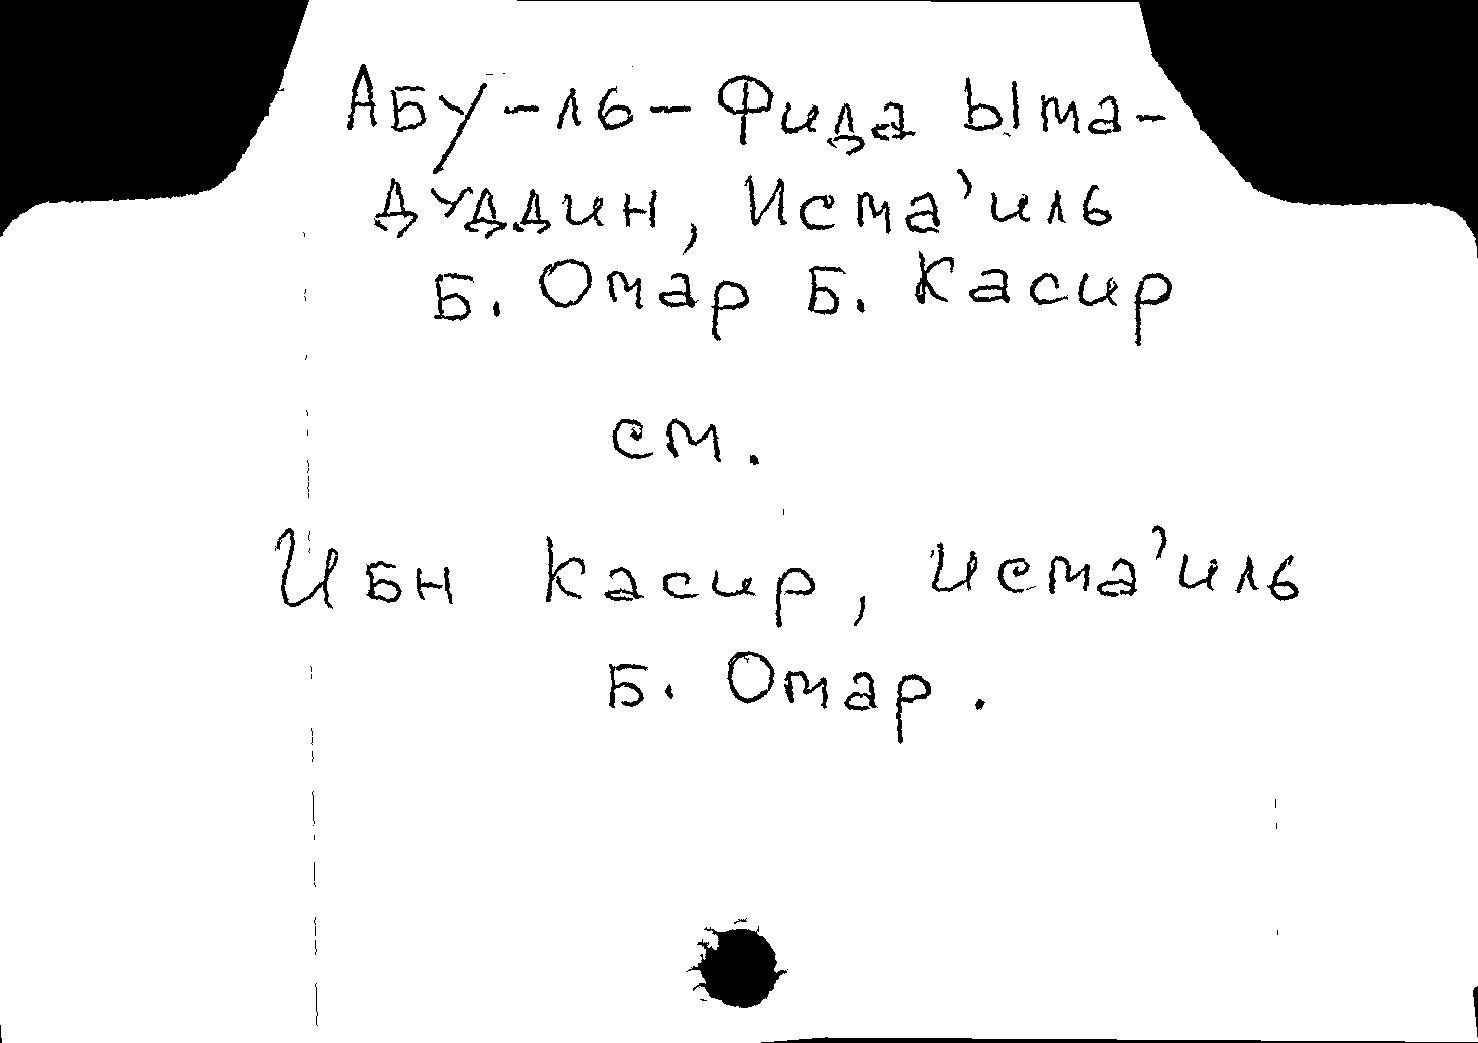 Абу-ль-Фида Ыма-
дуддин, Исма'иль
б. Омар б. Касир
см.
Ибн Касир, Исма'иль
б. Омар.